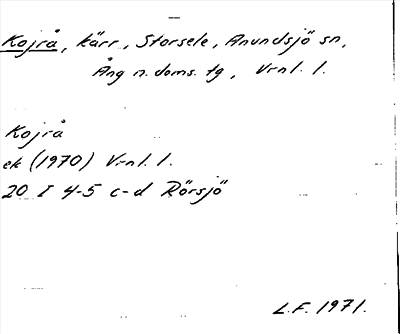 Kojrå, kärr, Storsele, Anundsjö sn,
Ång n. doms. tg, Vrnl. l.
Kojrå
ek (1970) Vrnl. l.
20 I 4-5 c-d Rörsjö
L.F. 1971.